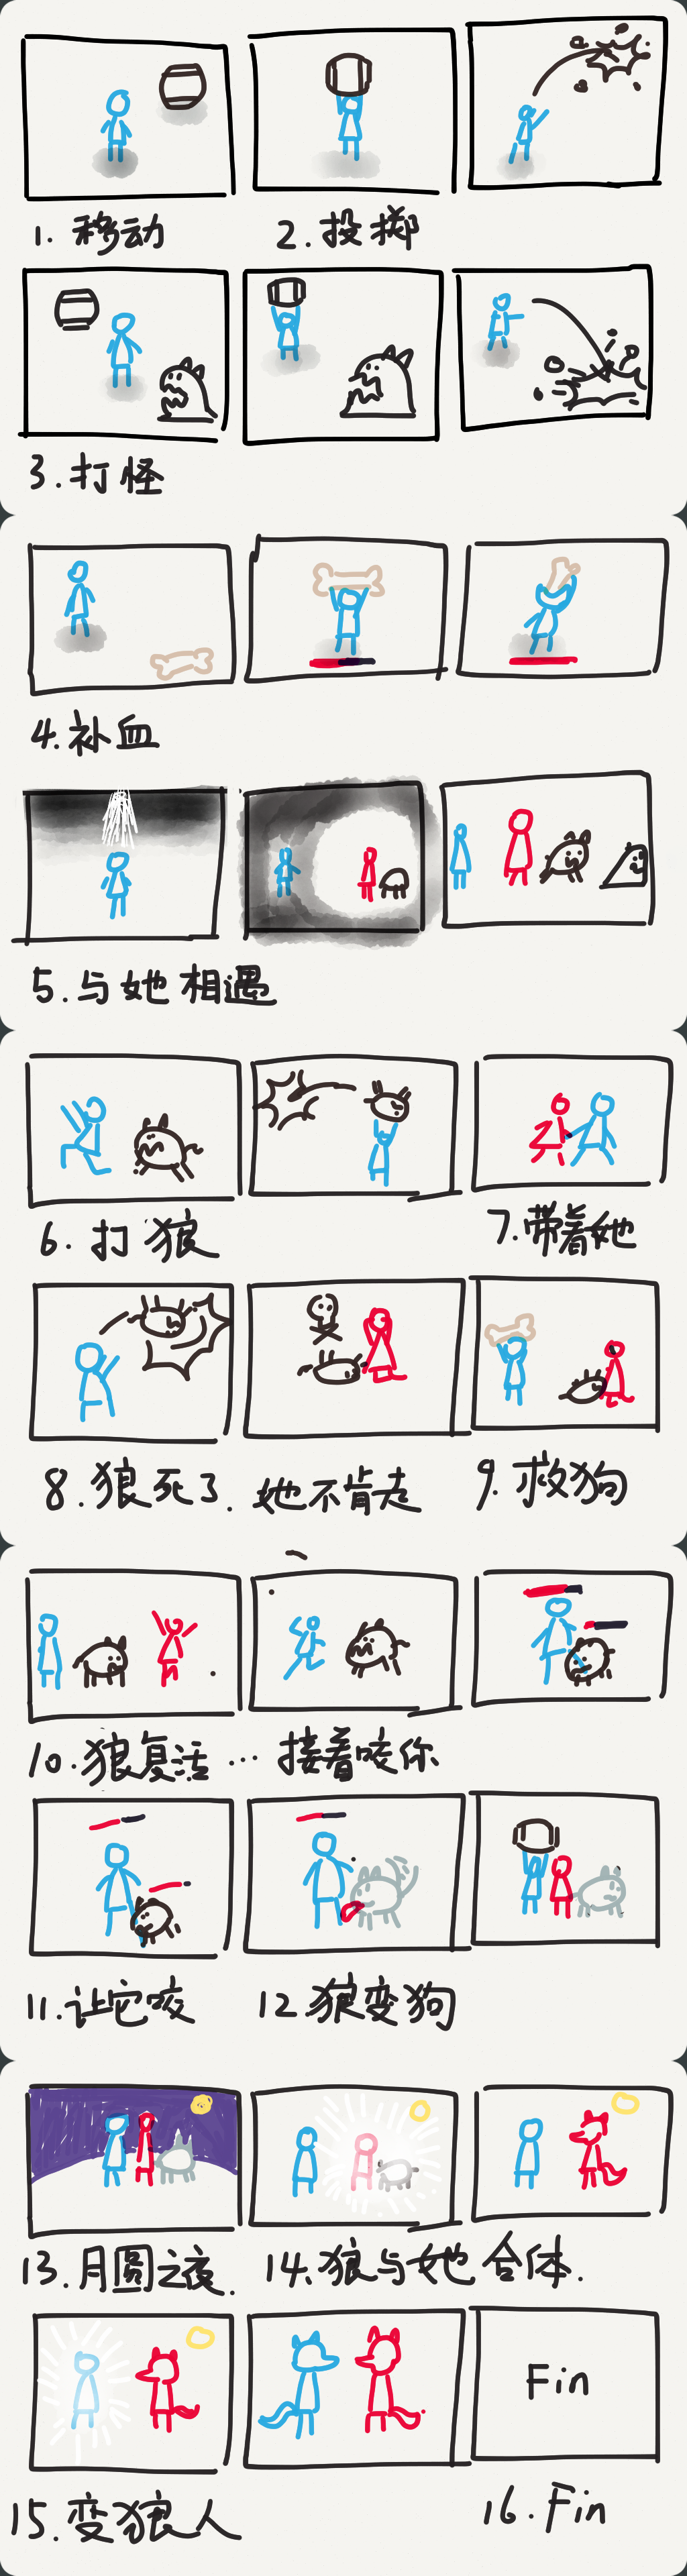 1. 移动 2. 投掷
3. 打怪
4. 补血
5. 与她相遇
6. 打狼 7. 带着她
8. 狼死了. 她不肯走 9. 救狗
10. 狼复活 … 接着咬你
11. 让它咬 12. 狼变狗
13. 月圆之夜. 14. 狼与她合体.
Fin
15. 变狼人 16. Fin